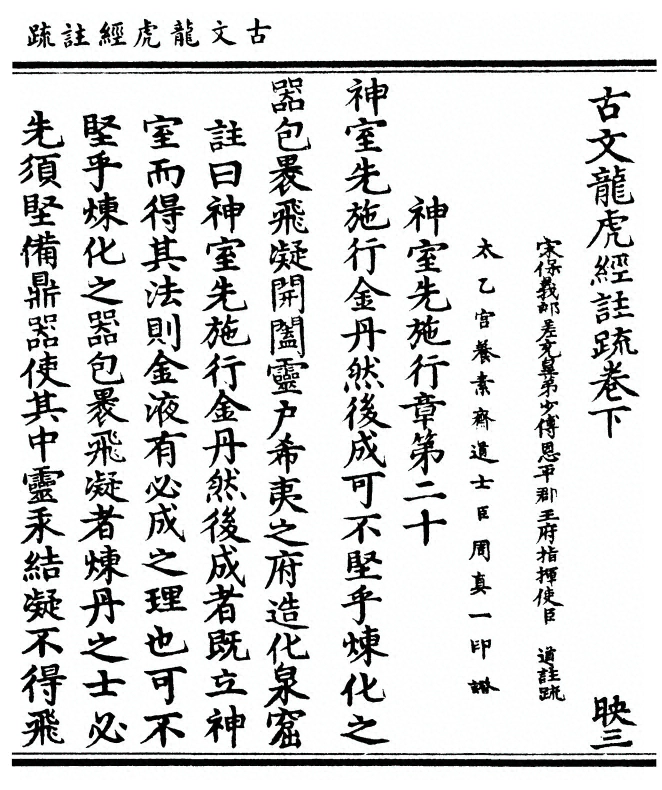 古文龍虎經註疏
古文龍虎經註疏卷下
映三
宋保義郎差充皇弟少傅恩平郡王府指揮使臣 道註疏
太乙宮養素齋道士臣周真一印證
神室先施行章第二十
神室先施行金丹然後成可不堅乎煉化之
器包裹飛凝開闔靈户希夷之府造化泉窟
註曰神室先施行金丹然後成者既立神
室而得其法則金液有必成之理也可不
堅乎煉化之器包裹飛凝者煉丹之士必
先須堅備鼎器使其中靈汞結凝不得飛